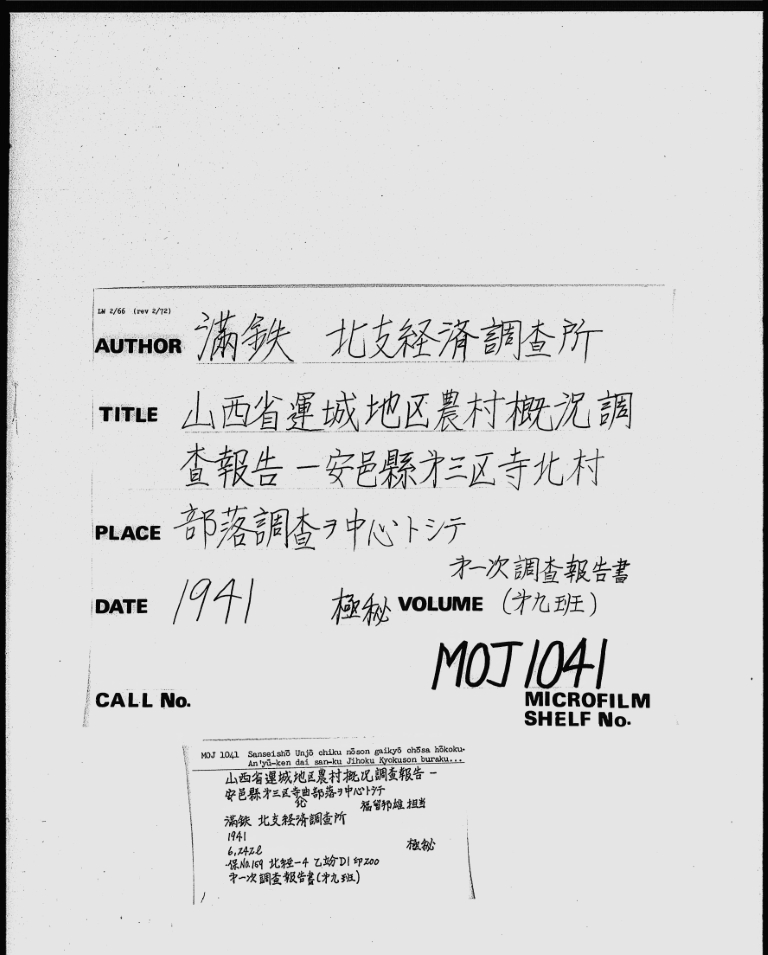 LW 2/66 (rev 2/72)
AUTHOR 滿鉄 北支経済調查所
TITLE 山西省運城地区農村概况調
查報告ー安邑縣才三区寺北村
PLACE 部落調查ヲ中心トシテ
才一次調查報告書
DATE 1941 極秘 VOLUME (才九班)
MOJ 1041
CALL No. MICROFILM
SHELF No.
MOJ 1041 Sanseishō Unjō chiku nōson gaikyō chōsa hōkoku-
An'yū-ken dai san-ku Jihoku Kyokuson buraku...
山西省運城地区農村概况調查報告ー
安邑縣才三区寺曲部落ヲ中心トシテ
北 福留邦雄 担当
滿鉄 北支経済調查所
1941
極秘
保No.159 北経ー4 乙 DI 印200
才一次調查報告書(才九班)